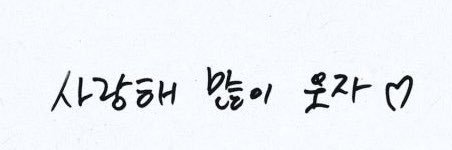 사랑해 많이 웃자♡